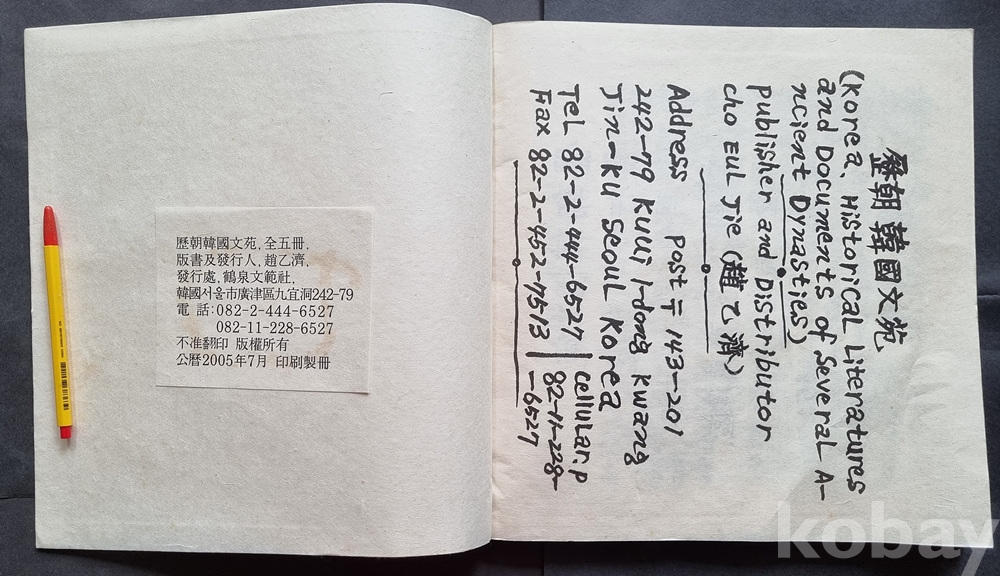 歷朝韓國文苑, 全五冊.
版書及發行人, 趙乙濟,
發行處, 鶴泉文範社,
韓國서울市廣津區九宜洞242-79
電 話:082-2-444-6527
082-11-228-6527
不准翻印 版權所有
公曆2005年7月 印刷製冊
歷朝韓國文苑
(Korea. Historical Literatures
and Documents of Several A-
ncient Dynasties)
publisher and Distributor
cho Eul Jie (趙乙濟)
Address post〒 143-201
242-79 Kuui 1-dong Kwang
Jin-Ku Seoul Korea
Tel 82-2-444-6527
cellular.p
82-11-228-
-6527
Fax 82-2-452-7513
kobay